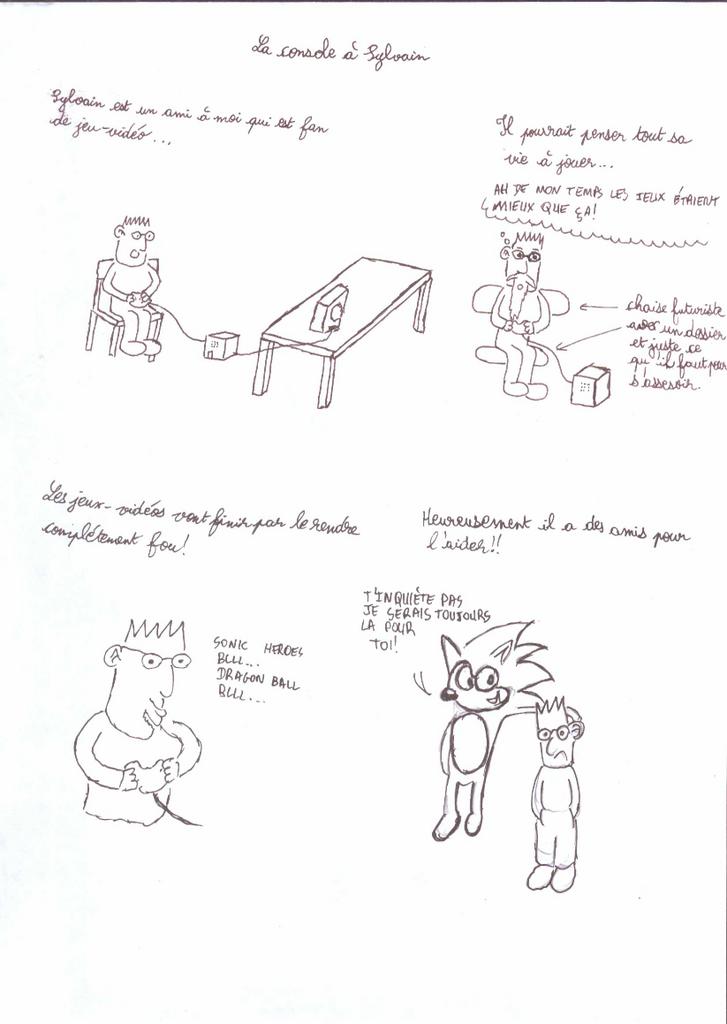 La console à Sylvain
Sylvain est un ami à moi qui est fan
de jeu-vidéo...
Il pourrait penser tout sa
vie à jouer...
AH DE MON TEMPS LES JEUX ÉTAIENT
MIEUX QUE ÇA!
chaise futuriste
avec un dossier
et juste ce
qu'il faut pour
s'assesoir.
Les jeux-vidéos vont finir par le rendre
complètement fou!
SONIC HEROES
BLL...
DRAGON BALL
BLL...
Heureusement il a des amis pour
l'aider!!
T'INQUIÈTE PAS
JE SERAIS TOUJOURS
LA POUR
TOI!